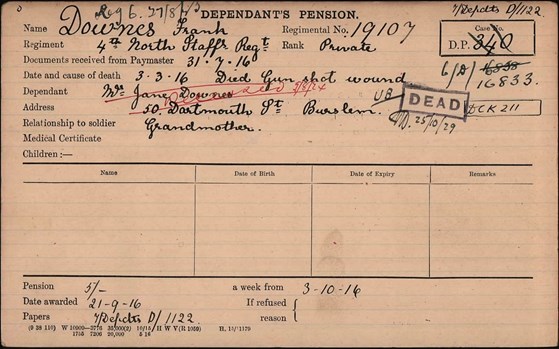 Reg 6. 27/8/23
DEPENDANT'S PENSION.
7/Depcts D/1122
Name Downes Frank Regimental No. 19107
Case No.
Regiment 4th North Staffs Regt Rank Private
D.P. 340
Documents received from Paymaster 31.7.16
6/D/ 16838
Date and cause of death 3.3.16 Died Gun shot wound
16833.
Dependant Mrs Jane Downes Deceased
UB
DEAD
DCK 211
Address 50. Dartmouth St Burslem.
25/10/29
Relationship to soldier Grandmother.
Medical Certificate
Children:—
Name Date of Birth Date of Expiry Remarks
Pension 5/- a week from 3-10-16
Date awarded 21-9-16 If refused {
Papers 7/Depcts D/1122. reason {
(9 38 110) W 10909—3776 35,000(2) 10/15 H W V(R 1089) H. 15/1179
1755 7206 20,000 5 16